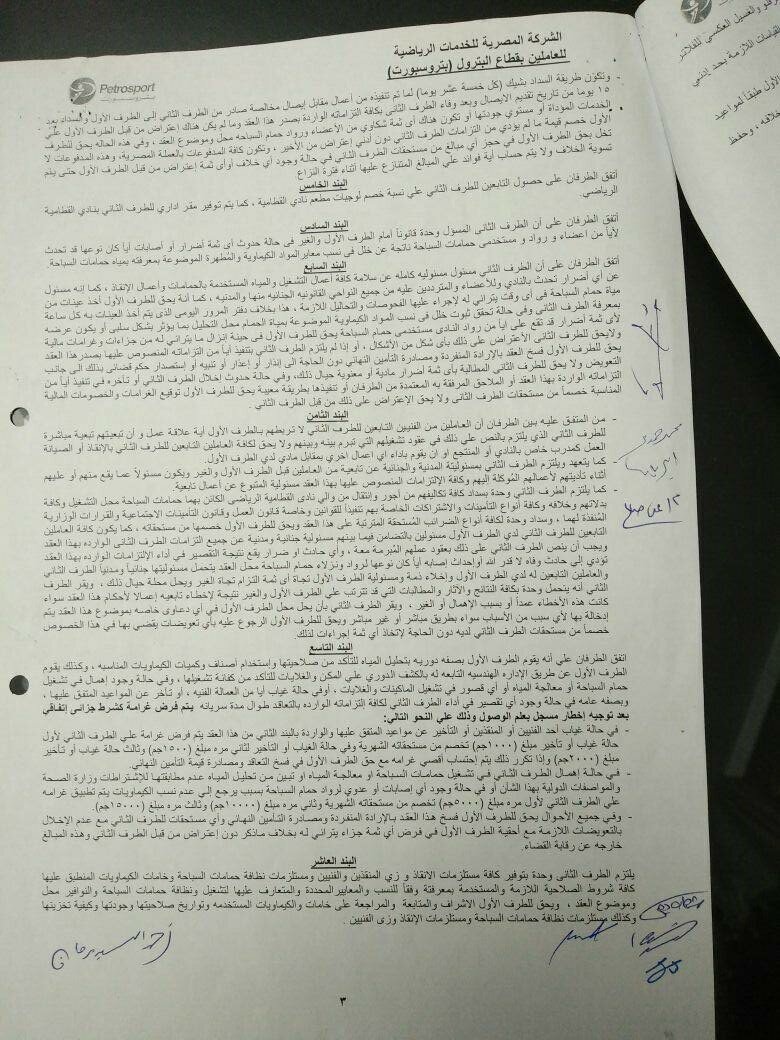 الشركة المصرية للخدمات الرياضية
للعاملين بقطاع البترول (بتروسبورت)
Petrosport
بتروسبورت
- وتكون طريقة السداد بشيك (كل خمسة عشر يوما) لما تم تنفيذه من أعمال مقابل إيصال مخالصة صادر من الطرف الثاني إلى الطرف الأول والسداد بعد
١٥ يوما من تاريخ تقديم الايصال وبعد وفاء الطرف الثاني بكافة التزاماته الواردة بصدر هذا العقد وما لم يكن هناك إعتراض من قبل الطرف الأول علي
الخدمات المؤداة أو مستوي جودتها أو تكون هناك أى ثمة شكاوي من الأعضاء ورواد حمام السباحه محل وموضوع العقد ، وفي هذه الحاله يحق للطرف
الأول خصم قيمة ما لم يؤدي من التزامات الطرف الثاني دون أدني إعتراض من الأخير ، وتكون كافة المدفوعات بالعملة المصرية، وهذه المدفوعات لا
تخل بحق الطرف الأول في حجز أي مبالغ من مستحقات الطرف الثاني في حالة وجود أي خلاف أوأى ثمة إعتراض من قبل الطرف الأول حتى يتم
تسوية الخلاف ولا يتم حساب أية فوائد علي المبالغ المتنازع عليها أثناء فترة النزاع
البند الخامس
أتفق الطرفان على حصول التابعين للطرف الثاني علي نسبة خصم لوجبات مطعم نادي القطامية ، كما يتم توفير مقر اداري للطرف الثاني بنادي القطامية
الرياضي.
البند السادس
أتفق الطرفان على أن الطرف الثانى المسؤل وحدة قانوناً أمام الطرف الأول والغير فى حالة حدوث أى ثمة أضرار أو أصابات أيا كان نوعها قد تحدث
لأياً من اعضاء و رواد و مستخدمى حمامات السباحة ناتجة عن خلل فى نسب معايرالمواد الكيماوية والمُطهرة الموضوعة بمعرفته بمياه حمامات السباحة.
البند السابع
أتفق الطرفان على أن الطرف الثاني مسئول مسئوليه كامله عن سلامة كافة أعمال التشغيل والمياه المستخدمة بالحمامات وأعمال الإنقاذ ، كما إنه مسئول
عن أي اضرار تحدث بالنادي وللأعضاء والمترددين عليه من جميع النواحي القانونيه الجنائيه منها والمدنيه ، كما أنة يحق للطرف الأول أخذ عينات من
مياة حمام السباحة فى أى وقت يتراني له لإجراء عليها الفحوصات والتحاليل اللازمة ، هذا بخلاف دفتر المرور اليومى الذى يتم أخذ العينات به كل ساعة
بمعرفة الطرف الثانى وفى حالة تحقق ثبوت خلل فى نسب المواد الكيماوية الموضوعة بمياة الحمام محل التحليل بما يؤثر بشكل سلبى أو يكون عرضه
لأى ثمة أضرار قد تقع على أياً من رواد النادى مستخدمى حمام السباحة يحق للطرف الأول فى حينة إنزال ما يتراني له من جزاءات وغرامات مالية
ولايحق للطرف الثانى الأعتراض على ذلك بأى شكل من الأشكال ، أو إذا لم يلتزم الطرف الثاني بتنفيذ أياً من التزاماته المنصوص عليها بصدر هذا العقد
يحق للطرف الأول فسخ العقد بالإرادة المنفردة ومصادرة التأمين النهائي دون الحاجة الى إنذار أو إعذار أو تنبيه أو إستصدار حكم قضائى بذلك الى جانب
التعويض ولا يحق للطرف الثاني المطالبة بأى ثمة أضرار مادية أو معنوية حيال ذلك، وفي حالة حدوث إخلال الطرف الثاني أو تأخره في تنفيذ أياً من
التزاماته الواردة بهذا العقد أو الملاحق المرفقة به المعتمدة من الطرفان أو تنفيذها بطريقة معيبة يحق للطرف الأول توقيع الغرامات والخصومات المالية
المناسبة خصماً من مستحقات الطرف الثانى ولا يحق الإعتراض على ذلك من قبل الطرف الثاني .
البند الثامن
- من المتفق عليه بين الطرفان أن العاملين من الفنيين التابعين للطرف الثاني لا تربطهم بالطرف الأول أية علاقة عمل و أن تبعيتهم تبعية مباشرة
للطرف الثاني الذي يلتزم بالنص على ذلك في عقود تشغيلهم التي تبرم بينه وبينهم ولا يحق لكافة العاملين التابعين للطرف الثاني بالإنقاذ أو الصيانة
العمل كمدرب خاص بالنادي أو المنتجع أو ان يقوم باداء اي اعمال اخري بمقابل مادي لدي الطرف الأول.
- كما يتعهد ويلتزم الطرف الثاني بمسئولية المدنية والجنائية عن تابعية من العاملين قبل الطرف الأول والغير ويكون مسئولاً عما يقع منهم أو عليهم
أثناء تأديتهم لأعمالهم المُوكلة إليهم وكافة الإلتزامات المنصوص عليها بهذا العقد مسئولية المتبوع عن أعمال تابعية.
- كما يلتزم الطرف الثاني وحدة بسداد كافة تكاليفهم من أجور وإنتقال من والي نادى القطامية الرياضى الكائن بهما حمامات السباحة محل التشغيل وكافة
بدلاتهم وخلافه وكافة أنواع التأمينات والاشتراكات الخاصة بهم تنفيذاً للقوانين وخاصة قانون العمل وقانون التأمينات الاجتماعية والقرارات الوزارية
المُنفذة لهما ، وسداد وحدة لكافة أنواع الضرائب المُستحقة المترتبة على هذا العقد ويحق للطرف الأول خصمها من مستحقاته ، كما يكون كافة العاملين
التابعين للطرف الثاني لدي الطرف الأول مسئولين بالتضامن فيما بينهم مسئولية جنائية ومدنية عن جميع التزامات الطرف الثاني الوارده بهذا العقد
ويجب أن ينص الطرف الثاني على ذلك بعقود عملهم المُبرمة معه ، وأي حادث او ضرار يقع نتيجة التقصير في أداء الإلتزامات الواردة بهذا العقد
تودي إلي حادث وفاه لا قدر الله أواحداث إصابه أيا كان نوعها لرواد ونزلاء حمام السباحة محل العقد يتحمل مسئوليتها جنائياً ومدنياً الطرف الثاني
والعاملين التابعين له لدى الطرف الأول وإخلاء ذمة ومسئولية الطرف الأول تجاة أى ثمة التزام تجاة الغير ويحل محلة حيال ذلك ، ويقر الطرف
الثاني أنه يتحمل وحدة بكافة النتائج والآثار والمطالبات التي قد تترتب علي الطرف الأول والغير نتيجة لإخطاء تابعيه إعمالا لأحكام هذا العقد سواء
كانت هذه الأخطاء عمداً أو بسبب الإهمال أو الغير ، ويقر الطرف الثاني بأن يحل محل الطرف الأول في أي دعاوى خاصه بموضوع هذا العقد يتم
إدخالة بها لأي سبب من الأسباب سواء بطريق مباشر أو غير مباشر ويحق للطرف الأول الرجوع عليه بأي تعويضات يقضي بها في هذا الخصوص
خصماً من مستحقات الطرف الثاني لديه دون الحاجة لإتخاذ أي ثمة إجراءات لذلك.
البند التاسع
اتفق الطرفان علي أنه يقوم الطرف الأول بصفه دوريه بتحليل المياه للتأكد من صلاحيتها وإستخدام أصناف وكميات الكيماويات المناسبه ، وكذلك يقوم
الطرف الأول عن طريق الإداره الهندسيه التابعه له بالكشف الدوري علي المكن والغلايات للتأكد من كفائة تشغيلها ، وفي حالة وجود إهمال في تشغيل
حمام السباحة أو معالجة المياه أو اي قصور في تشغيل الماكينات والغلايات ، أوفي حالة غياب أيا من العمالة الفنيه ، أو تأخر عن المواعيد المتفق عليها ،
وبصفه عامه في حالة وجود أي تقصير في أداء الطرف الثاني لكافة التزاماته الوارده بالتعاقد طوال مدة سريانه يتم فرض غرامة كشرط جزائى إتفاقي
بعد توجيه إخطار مسجل بعلم الوصول وذلك علي النحو التالي:
- في حالة غياب أحد الفنيين أو المنقذين أو التأخير عن مواعيد المتفق عليها والواردة بالبند الثاني من هذا العقد يتم فرض غرامة علي الطرف الثاني لأول
حالة غياب أو تأخير مبلغ (١٠٠٠جم) تخصم من مستحقاته الشهرية وفي حالة الغياب أو التأخير لثاني مره مبلغ (١٥٠٠جم) وثالث حالة غياب أو تأخير
مبلغ (٢٠٠٠جم) وإذا تكرر ذلك يتم إحتساب أقصي غرامه مع حق الطرف الأول في فسخ التعاقد ومصادرة قيمة التأمين النهائي.
- في حالة إهمال الطرف الثاني في تشغيل حمامات السباحة او معالجة المياه او تبين من تحليل المياه عدم مطابقتها للإشتراطات وزارة الصحة
والمواصفات الدولية بهذا الشأن أو في حالة وجود أي إصابات أو عدوي لرواد حمام السباحة بسبب يرجع إلي عدم نسب الكيماويات يتم تطبيق غرامه
علي الطرف الثاني لأول مره مبلغ (٥٠٠٠جم) تخصم من مستحقاته الشهرية وثاني مره مبلغ (١٠٠٠٠جم) وثالث مره مبلغ (١٥٠٠٠جم).
- وفي جميع الأحوال يحق للطرف الأول فسخ هذا العقد بالإرادة المنفردة ومصادرة التأمين النهائي وأي مستحقات للطرف الثاني مع عدم الإخلال
بالتعويضات اللازمة مع أحقية الطرف الأول في فرض أي ثمة جزاء يتراني له بخلاف ماذكر دون إعتراض من قبل الطرف الثاني وهذه المبالغ
خارجه عن رقابة القضاء.
البند العاشر
يلتزم الطرف الثانى وحدة بتوفير كافة مستلزمات الانقاذ و زي المنقذين والفنيين ومستلزمات نظافة حمامات السباحة وخامات الكيماويات المنطبق عليها
كافة شروط الصلاحية اللازمة والمستخدمة بمعرفته وفقاً للنسب والمعايير المحددة والمتعارف عليها لتشغيل ونظافة حمامات السباحة والنوافير محل
وموضوع العقد ، ويحق للطرف الأول الاشراف والمتابعة والمراجعة على خامات والكيماويات المستخدمه وتواريخ صلاحيتها وجودتها وكيفية تخزينها
وكذلك مستلزمات نظافة حمامات السباحة ومستلزمات الإنقاذ وزى الفنيين .
٣
والغسيل العكسي للفلاتر
القياسات اللازمة بحد إدني
الأول طبقاً لمواعيد
خلافه ، وحفظ